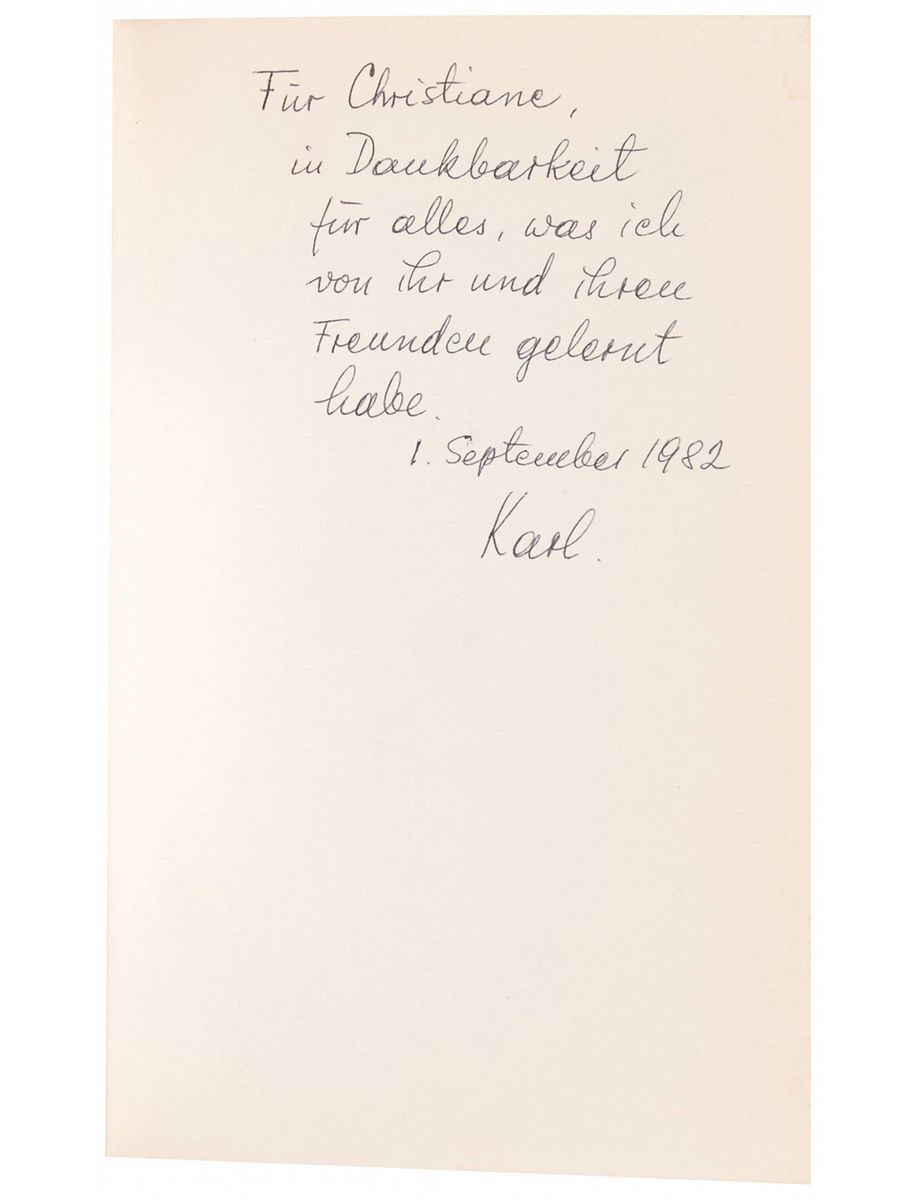 Für Christiane,
in Dankbarkeit
für alles, was ich
von ihr und ihren
Freunden gelernt
habe.
1. September 1982
Karl.